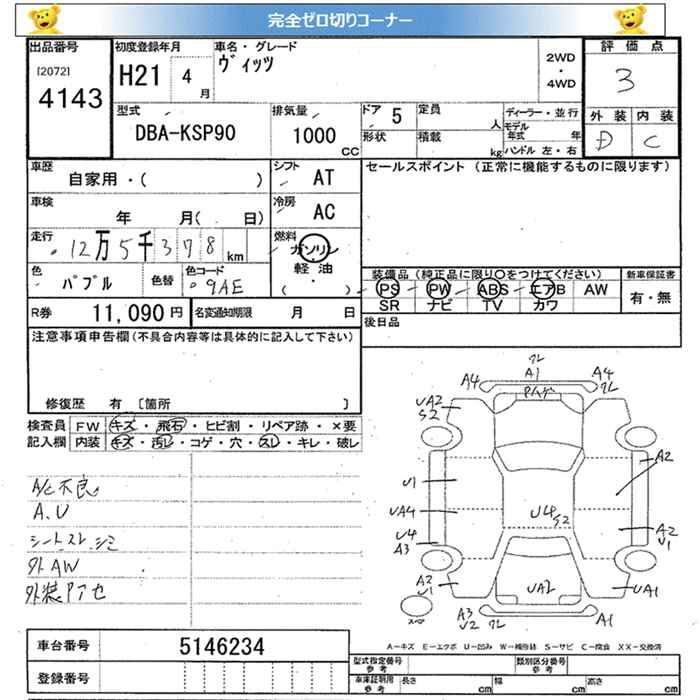 完全ゼロ切りコーナー
出品番号
[2072]
4143
初度登録年月
H21 4 月
車名・グレード
ヴィッツ
2WD
・
4WD
評価点
3
外装 内装
D C
型式
DBA-KSP90
排気量
1000
CC
ドア 5
形状
定員 人
積載 kg
ディーラー・並行
モデル
年式 年
ハンドル 左・右
車歴
自家用・( )
シフト
AT
セールスポイント (正常に機能するものに限ります)
車検
年 月( 日)
冷房
AC
走行
12万5千378km
燃料
ガソリン
軽油
( ・ )
色
パプル
色替
色コード
9AE
装備品(純正品に限り○をつけてください)
PS PW ABS エアB AW
SR ナビ TV カワ
新車保証書
有・無
R券 11,090円
名変通知期限 月 日
後日品
注意事項申告欄(不具合内容等は具体的に記入して下さい)
修復歴 有 [箇所 ]
検査員
記入欄
FW キズ・飛石・ヒビ割・リペア跡・×要
内装 キズ・汚レ・コゲ・穴・スレ・キレ・破レ
A/C不良
A.U
シートスレ シミ
外AW
外装PTセ
クレ
A4 A1 A4
クレ
UA2
S2
A2
U1
UA4
U4
S2
U4
A3
A2
U1
A2
U1
UA2
UA1
A3
U2 クレ
A1
車台番号 5146234
登録番号
A－キズ E－エクボ U－凹み W－補修跡 S－サビ C－腐食 XX－交換済
型式指定番号
参考
類別区分番号
参考
車庫証明用
参考
長さ cm 幅 cm 高さ cm